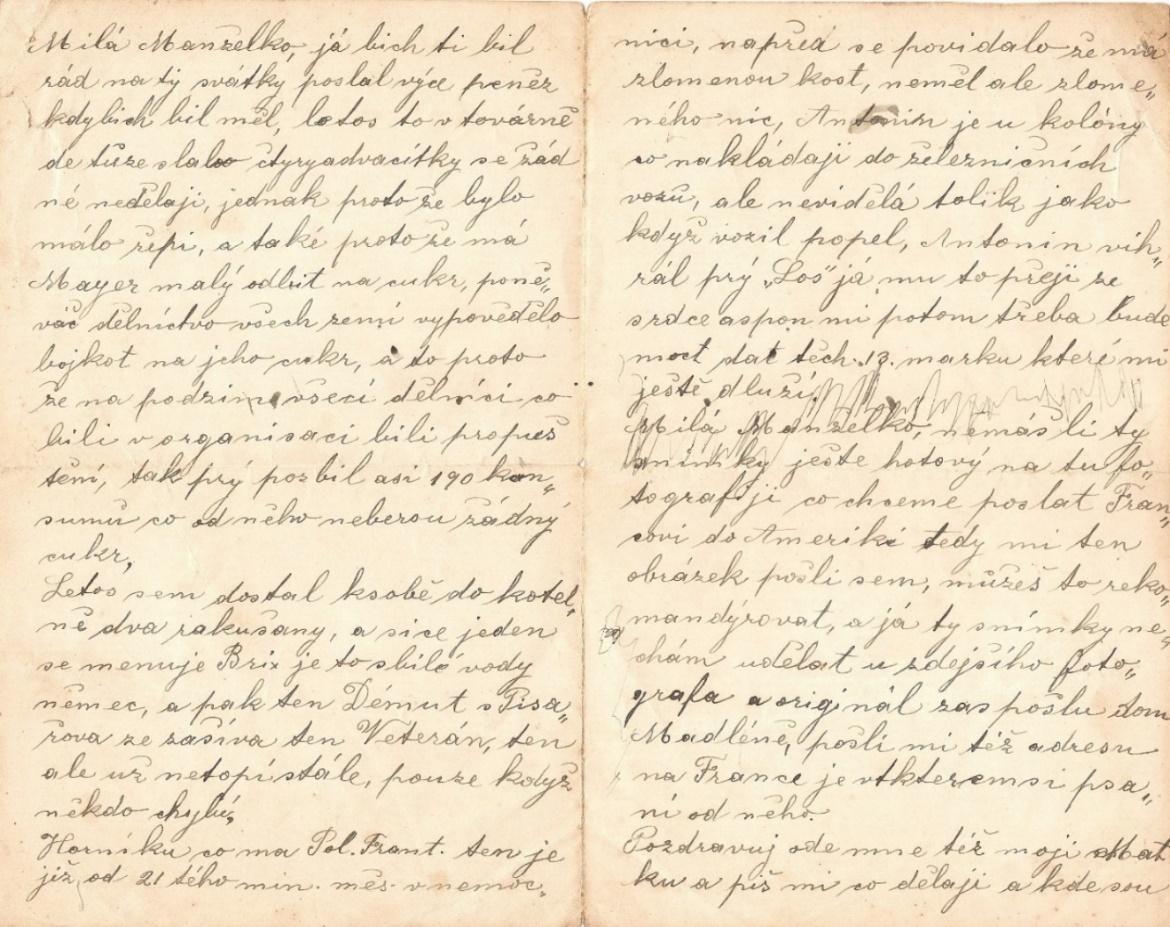 Milá Manželko, já bich ti bil
rád na ty svátky poslal výce peněz
kdybich bil měl, letos to v továrně
de tuze slabo čtyryadvacítky se žád
né nedělaji, jednak proto že bylo
málo řepi, a také proto že má
Mayer malý odbit na cukr, poně„
váč dělnictvo všech zemí vypovědělo
bojkot na jeho cukr, a to proto
že na podzim všeci dělníci co
bili v organisaci bili propuš
tění, tak prý pozbil asi 190 kon„
sumů co od něho neberou žádný
cukr,
Letos sem dostal ksobě do kotel„
ně dva rakušany, a sice jeden
se menuje Brix je to sbilé vody
němec, a pak ten Démut s Pisa„
řova ze zašíva ten Veterán, ten
ale už netopí stále, pouze kodyž
někdo chybí,
Horníku co ma Pol. Frant. ten je
již od 21 tého min. měs. v nemoc„
nici, napřed se povidalo že má
zlomenou kost, neměl ale zlome„
ného nic, Antonin je u kolóny
co nakládaji do železničních
vozů, ale nevidělá tolik jako
když vozil popel, Antonin vih„
rál prý „Los“ já mu to přeji ze
srdce aspon mi potom třeba bude
moct dat těch 13. marku které mi
ještě dluží.
Milá Manželko, nemáš li ty
snímky ješte hotový na tu fo„
tografiji co chceme poslat Fran„
covi do Ameriki tedy mi ten
obrázek pošli sem, můžeš to reko„
mandýrovat, a já ty snímky ne„
chám udělat u zdejšího foto„
grafa a originál zas pošlu dom
Madléně, pošli mi též adresu
na France je vtkteremsi psa„
ní od něho.
Pozdravuj ode mne též moji Mat
ku a piš mi co dělaji a kde sou